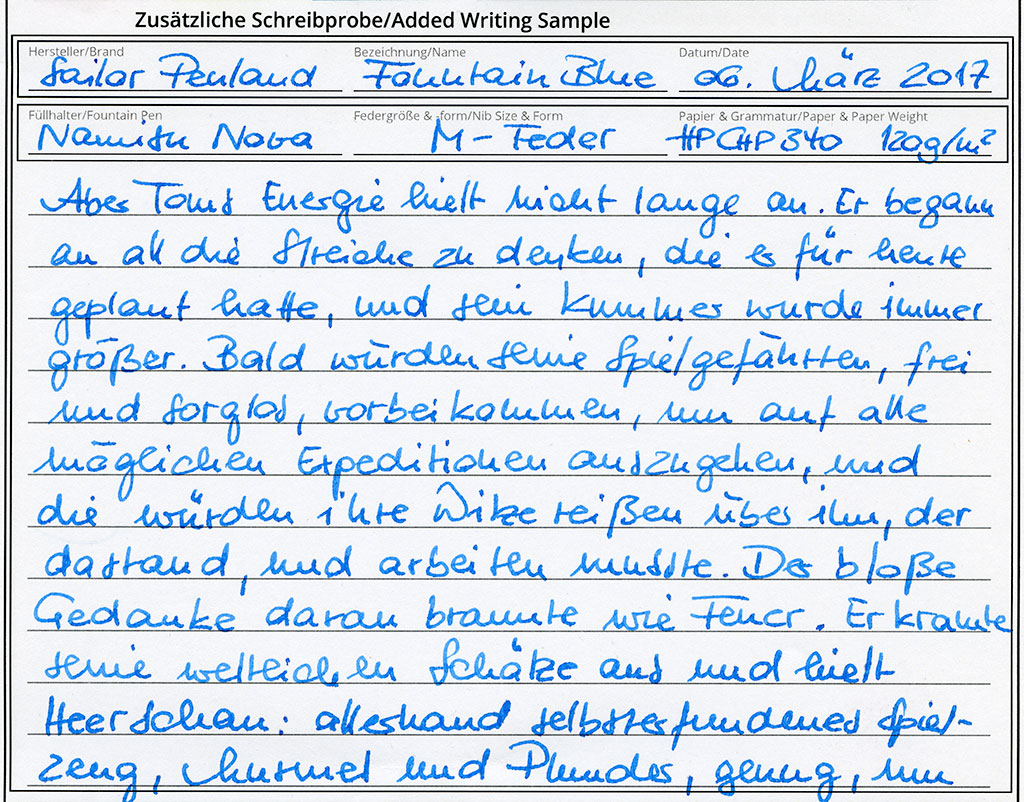 Zusätzliche Schreibprobe/Added Writing Sample
Hersteller/Brand Bezeichnung/Name Datum/Date
Sailor Penland Fountain Blue 06. März 2017
Füllhalter/Fountain Pen Federgröße & -form/Nib Size & Form Papier & Grammatur/Paper & Paper Weight
Namisu Nova M-Feder HPCHP340 120g/m²
Aber Toms Energie hielt nicht lange an. Er begann
an all die Streiche zu denken, die er für heute
geplant hatte, und sein Kummer wurde immer
größer. Bald würden seine Spielgefährten, frei
und sorglos, vorbeikommen, um auf alle
möglichen Expeditionen auszugehen, und
die würden ihre Witze reißen über ihn, der
dastand, und arbeiten musste. Der bloße
Gedanke daran brannte wie Feuer. Er kramte
seine weltlichen Schätze aus und hielt
Heerschau: allerhand selbsterfundenes Spiel-
zeug, Murmel und Plunder, genug, um